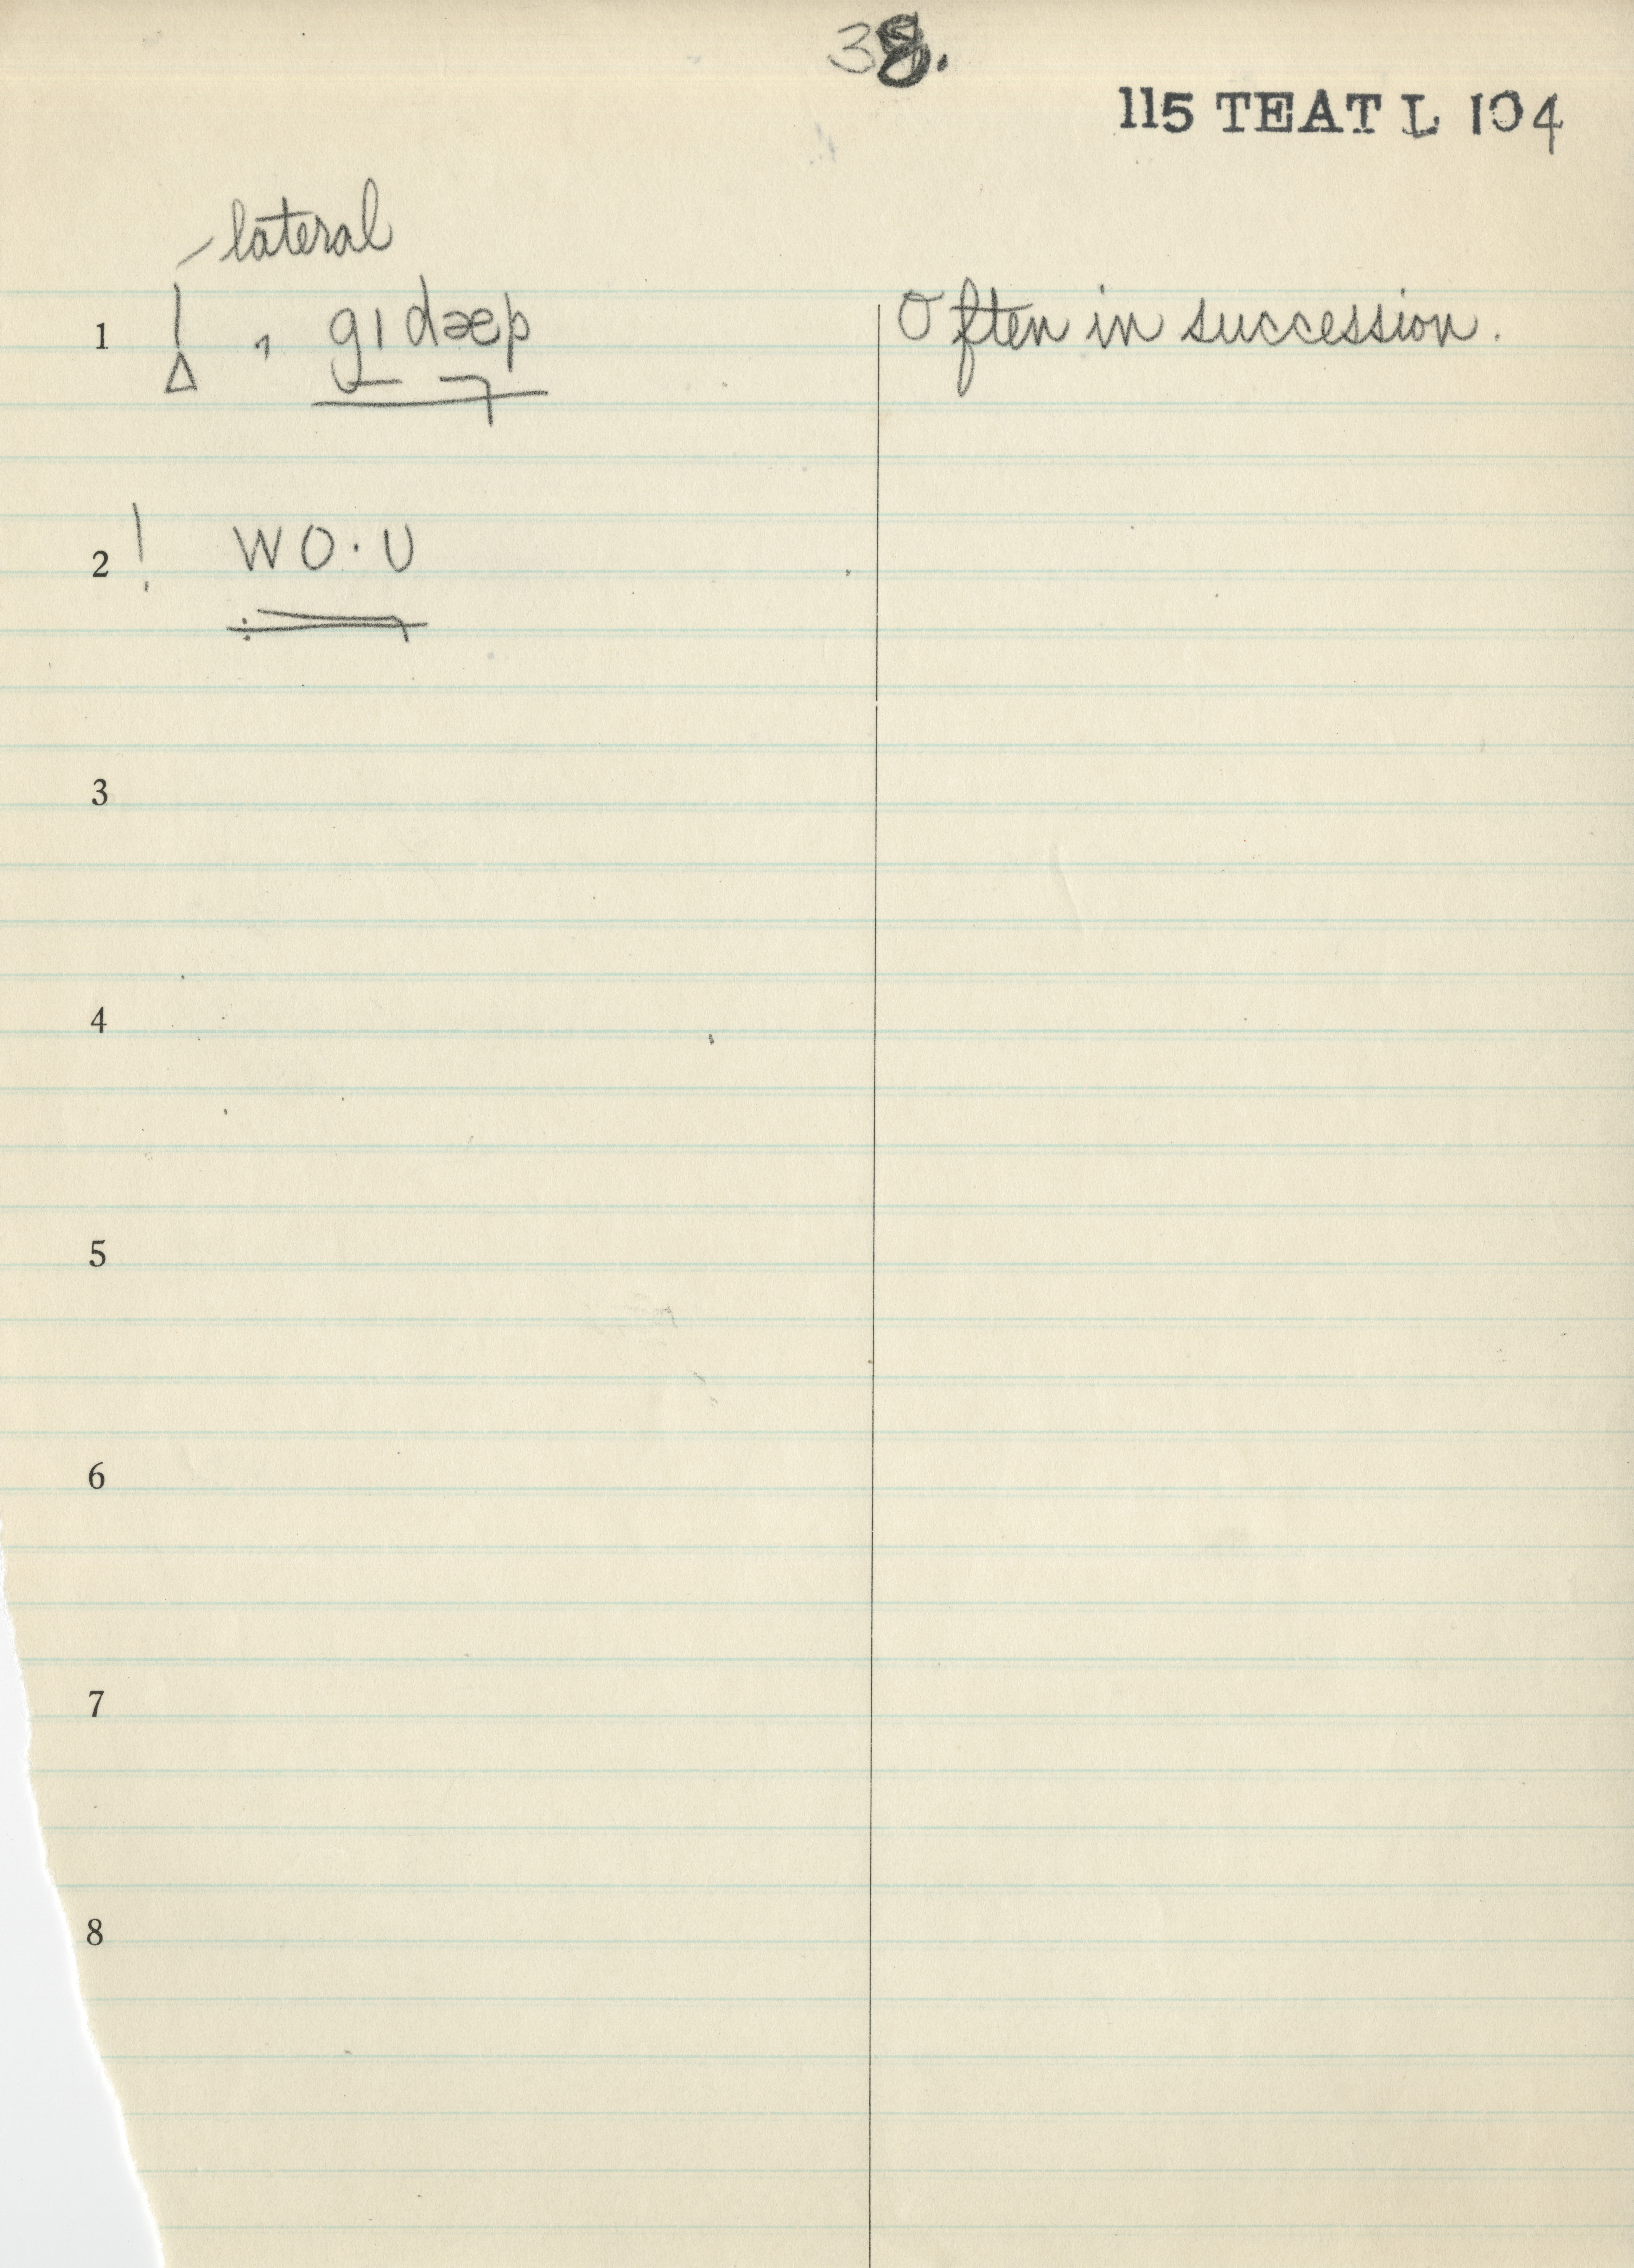 38.
115 TEAT L 104
lateral
1 ! , gɪdæp Often in succession.
2 ! wo·ʊ
3
4
5
6
7
8